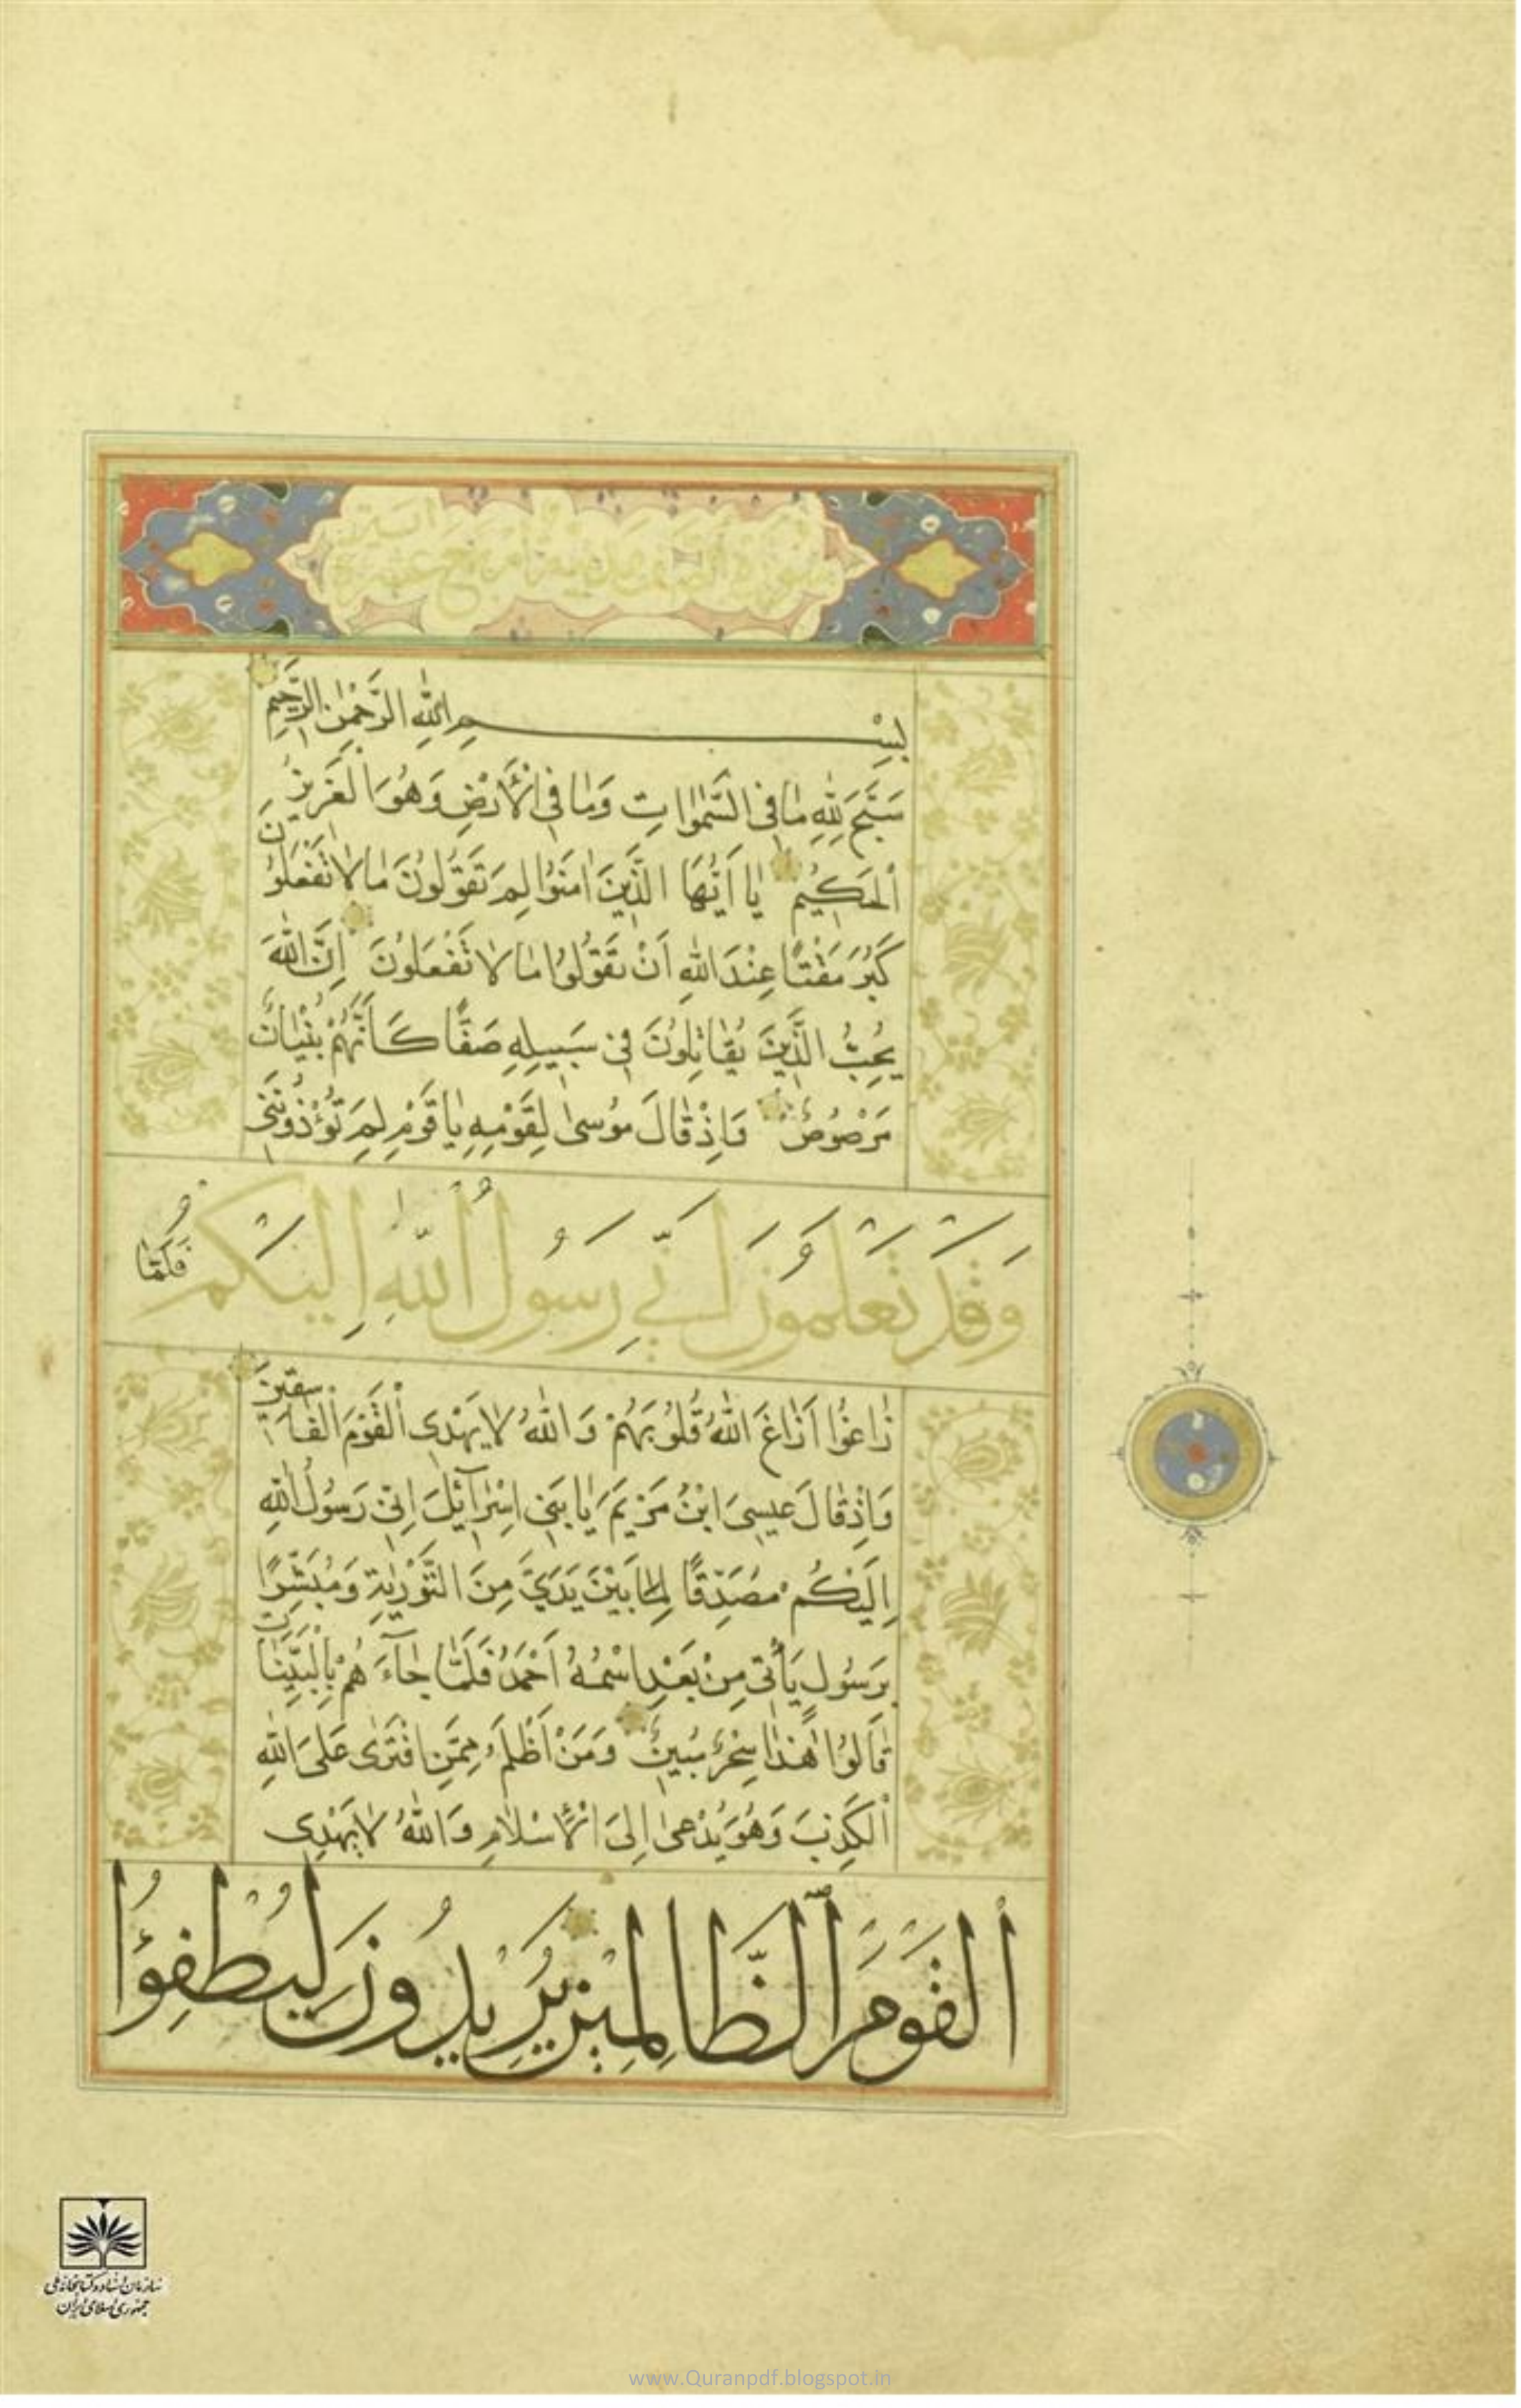 بِسْمِ اللّٰهِ الرَّحْمٰنِ الرَّحِيمِ
سَبَّحَ لِلّٰهِ مَا فِى السَّمٰوَاتِ وَمَا فِى الْاَرْضِ وَهُوَ الْعَزِيزُ
الْحَكِيمُ يَا اَيُّهَا الَّذِينَ اٰمَنُوا لِمَ تَقُولُونَ مَا لَا تَفْعَلُونَ
كَبُرَ مَقْتًا عِنْدَ اللّٰهِ اَنْ تَقُولُوا مَا لَا تَفْعَلُونَ اِنَّ اللّٰهَ
يُحِبُّ الَّذِينَ يُقَاتِلُونَ فِى سَبِيلِهِ صَفًّا كَاَنَّهُمْ بُنْيَانٌ
مَرْصُوصٌ وَاِذْ قَالَ مُوسٰى لِقَوْمِهِ يَا قَوْمِ لِمَ تُؤْذُونَنِى
وَقَدْ تَعْلَمُونَ اَنِّى رَسُولُ اللّٰهِ اِلَيْكُمْ فَلَمَّا
زَاغُوا اَزَاغَ اللّٰهُ قُلُوبَهُمْ وَاللّٰهُ لَا يَهْدِى الْقَوْمَ الْفَاسِقِينَ
وَاِذْ قَالَ عِيسَى ابْنُ مَرْيَمَ يَا بَنِى اِسْرَآئِيلَ اِنِّى رَسُولُ اللّٰهِ
اِلَيْكُمْ مُصَدِّقًا لِمَا بَيْنَ يَدَىَّ مِنَ التَّوْرٰيةِ وَمُبَشِّرًا
بِرَسُولٍ يَأْتِى مِنْ بَعْدِى اسْمُهُ اَحْمَدُ فَلَمَّا جَآءَهُمْ بِالْبَيِّنَاتِ
قَالُوا هٰذَا سِحْرٌ مُبِينٌ وَمَنْ اَظْلَمُ مِمَّنِ افْتَرٰى عَلَى اللّٰهِ
الْكَذِبَ وَهُوَ يُدْعٰى اِلَى الْاِسْلَامِ وَاللّٰهُ لَا يَهْدِى
الْقَوْمَ الظَّالِمِينَ يُرِيدُونَ لِيُطْفِؤُا
سازمان اسناد و کتابخانه ملی
جمهوری اسلامی ایران
www.Quranpdf.blogspot.in